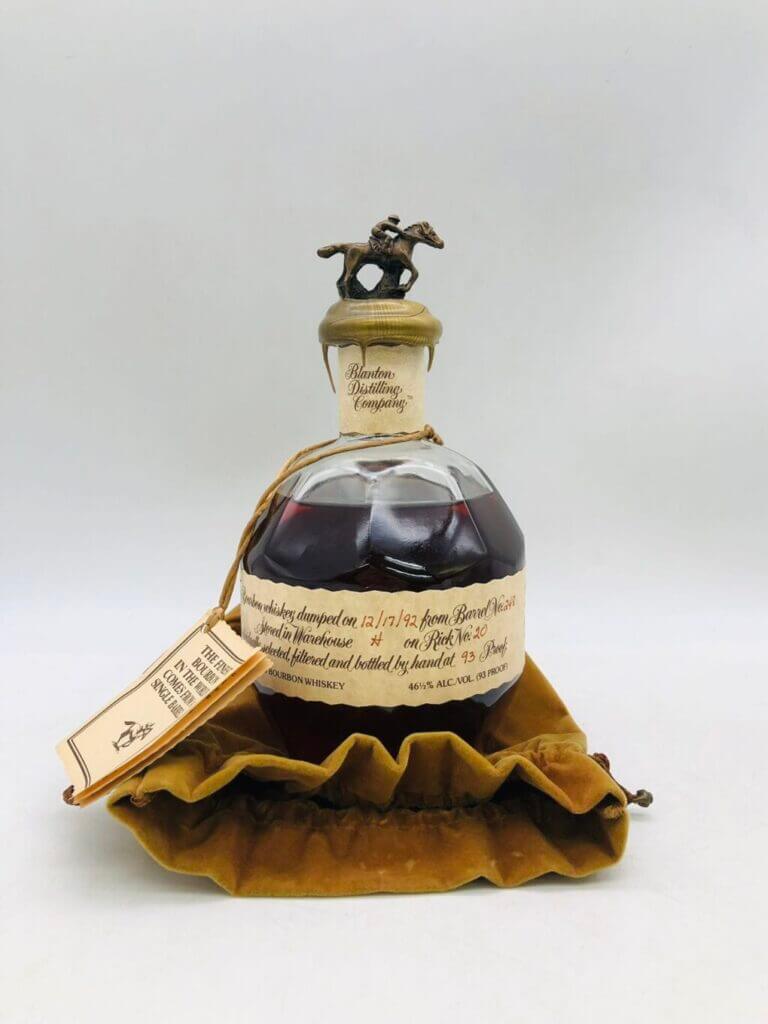 Blanton
Distilling
Company™
Bourbon whiskey dumped on 12/17/92 from Barrel No:
Stored in Warehouse H on Rick No: 20
selected, filtered and bottled by hand at 93 Proof
BOURBON WHISKEY 46½% ALC./VOL. (93 PROOF)
THE
BOURBON
IN THE WORLD
COMES FROM
SINGLE